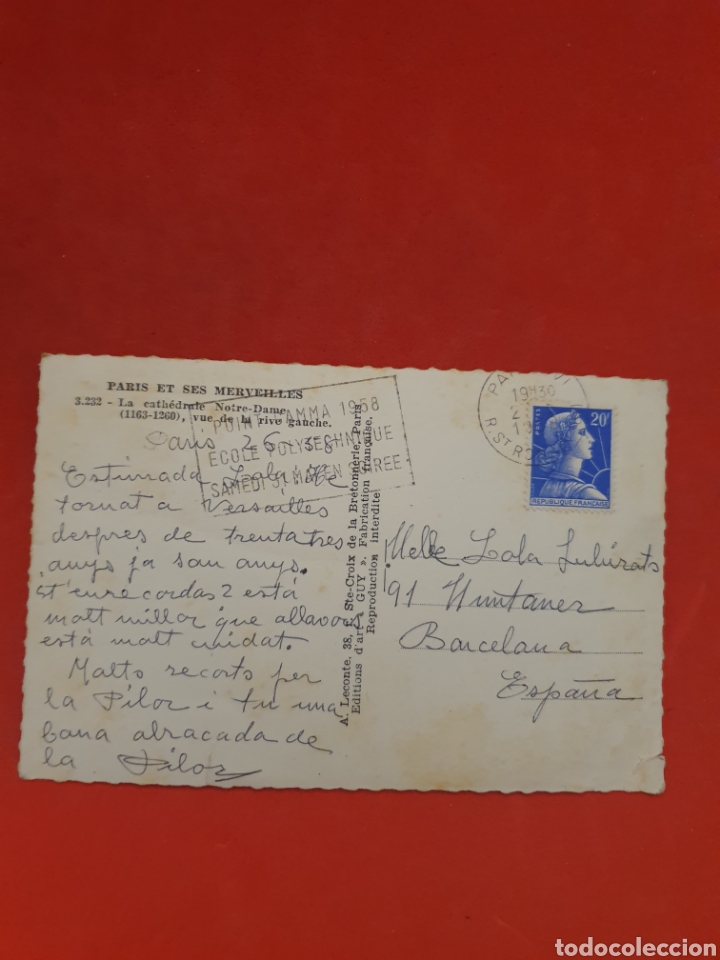 PARIS ET SES MERVEILLES
3.232 - La cathédrale Notre-Dame
(1163-1260), vue de la rive gauche.
POINT GAMMA 1958
ECOLE POLYTECHNIQUE
SAMEDI 31 MAI EN SOIREE
Paris 26 5 58
Estimada Lola He
tornat a Versailles
despres de trenta tres
anys ja son anys.
t'enrecordas? está
molt millor que allavors
está molt cuidat.
Molts recorts per
la Pilar i tu una
bona abracada de
la Pilar
A. Leconte, 38, R. Ste-Croix de la Bretonnerie, Paris
Editions d'art « GUY ». Fabrication française.
Reproduction interdite
PARIS
19H30
R. ST RO
POSTES
20F
REPUBLIQUE FRANÇAISE
Melle Lola
91 Muntaner
Barcelona
España
todocoleccion